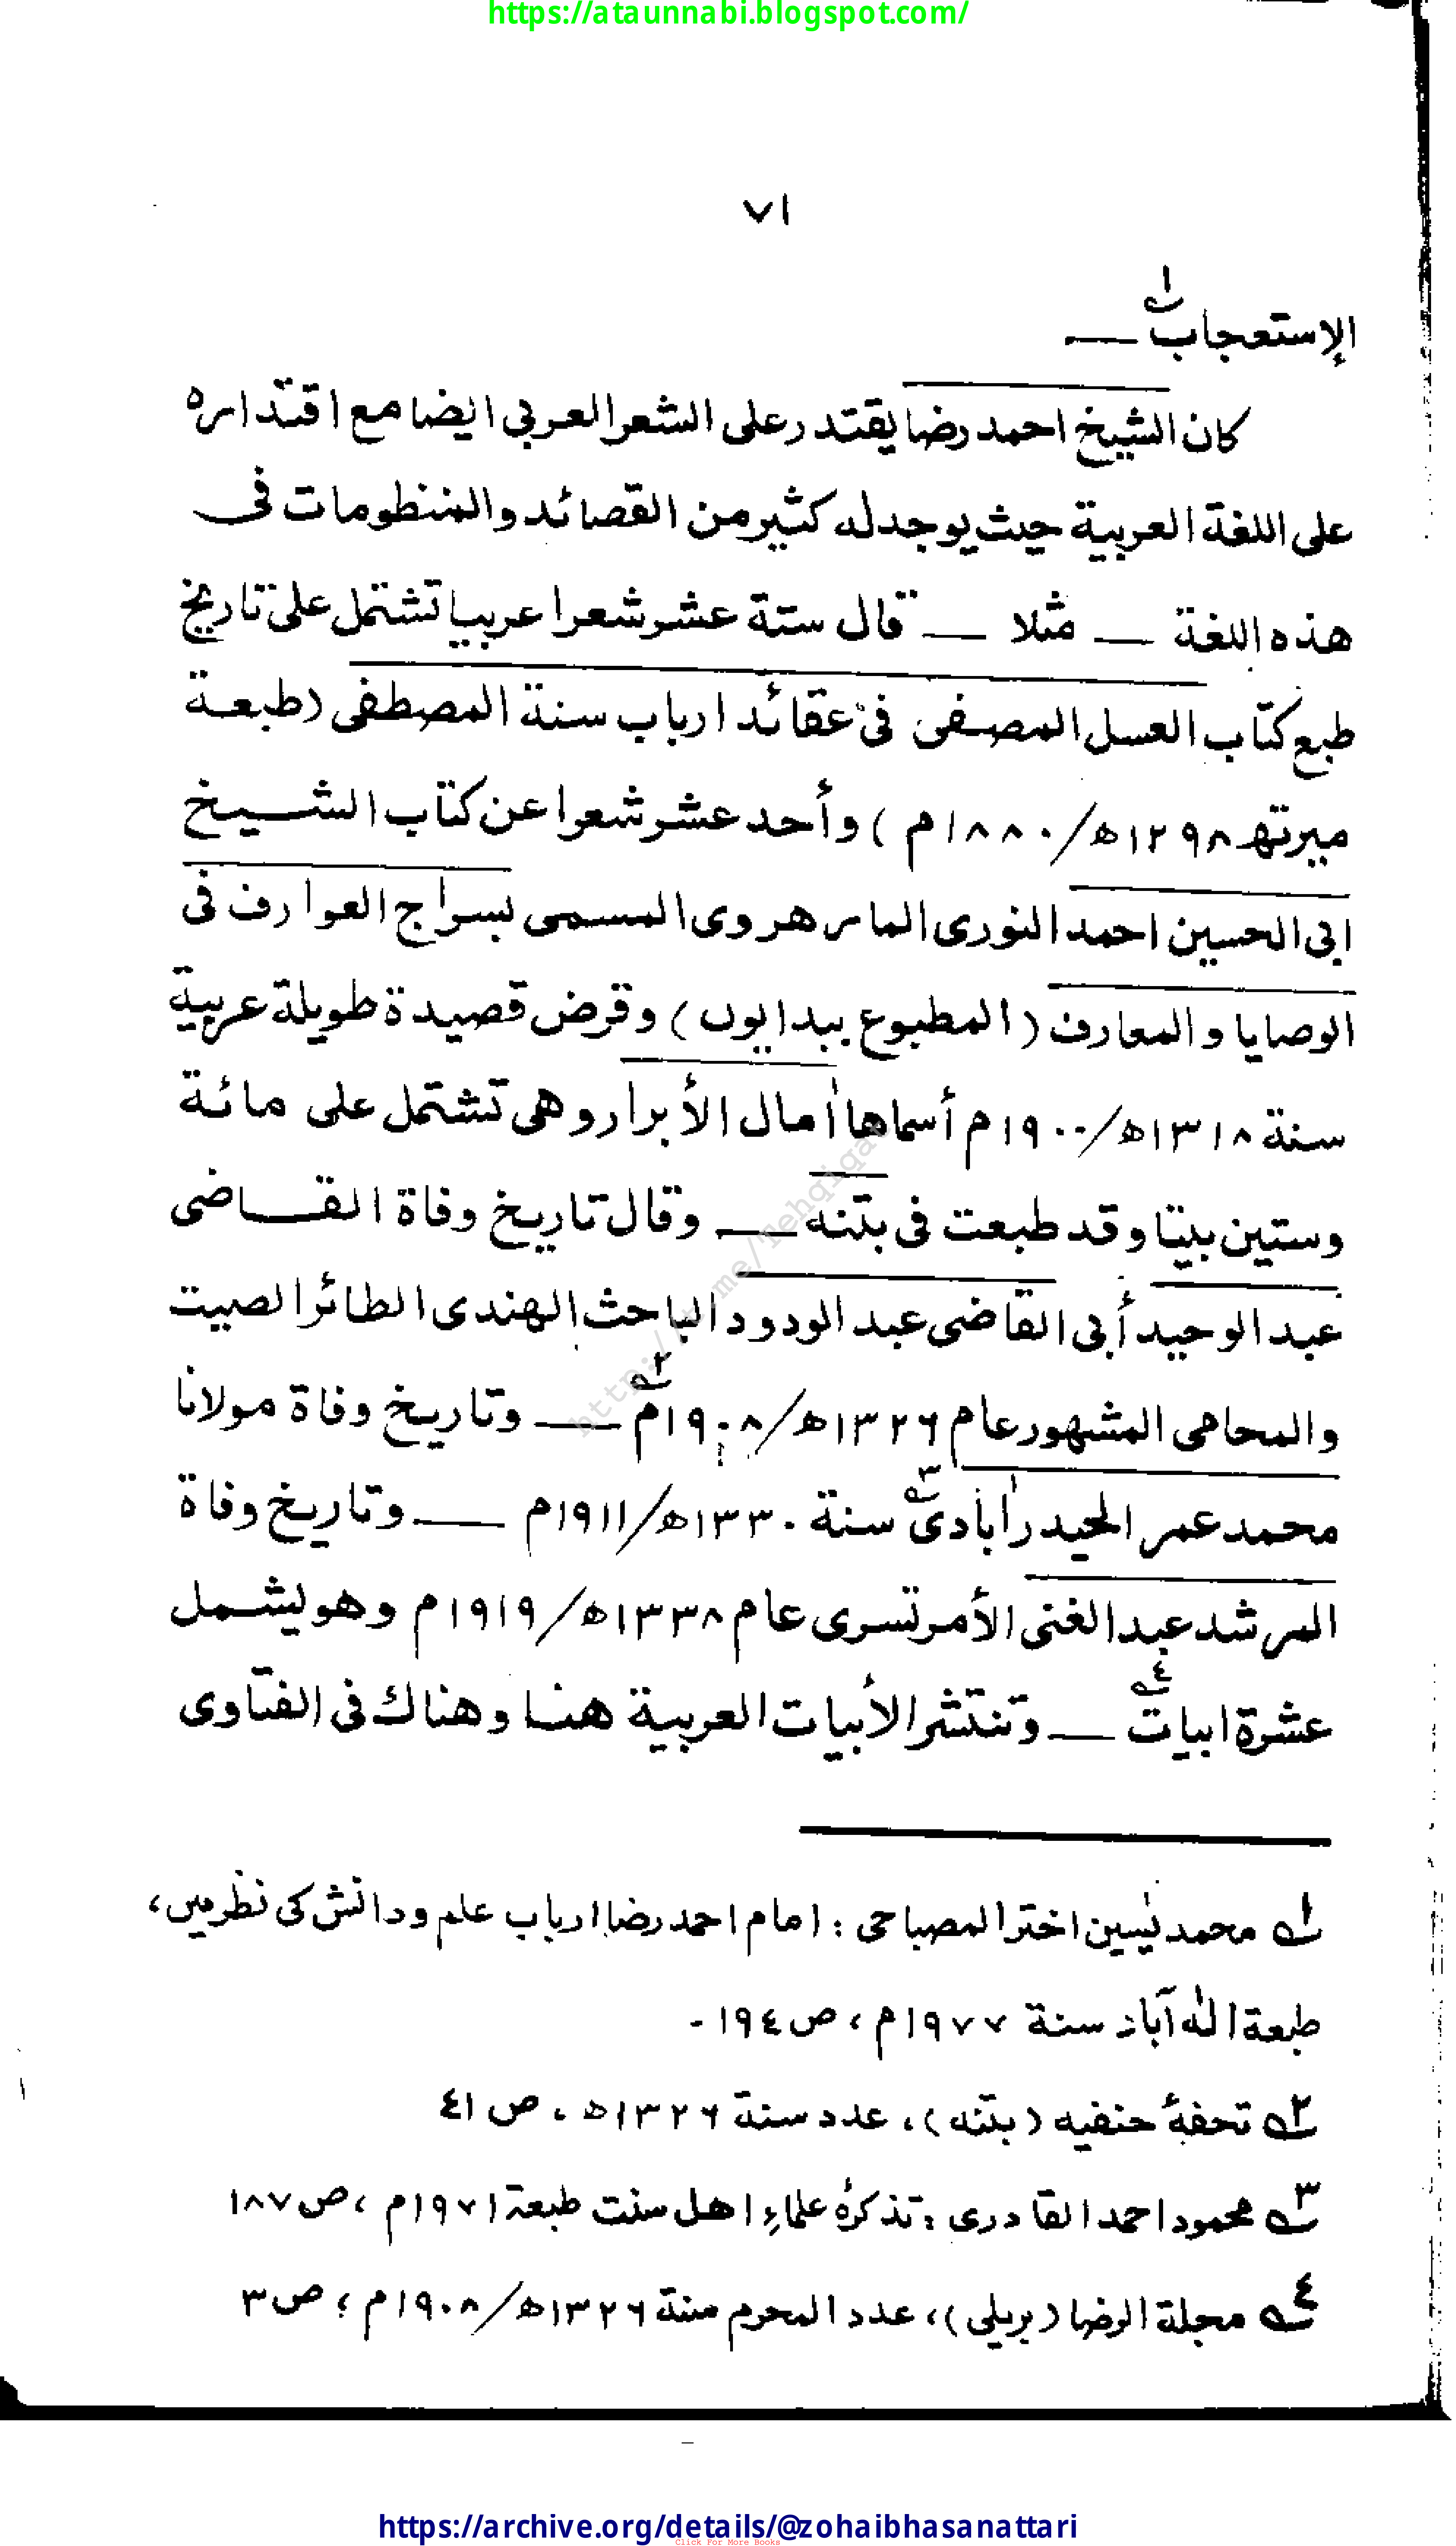 https://ataunnabi.blogspot.com/
٧١
الإستعجاب ١ـه ــ
كان الشيخ احمد رضا يقتدر على الشعر العربى ايضا مع اقتداره
على اللغة العربية حيث يوجد له كثير من القصائد والمنظومات فى
هذه اللغة ــ مثلا ــ قال ستة عشر شعرا عربيا تشتمل على تاريخ
طبع كتاب العسل المصفى فى عقائد ارباب سنة المصطفى (طبعة
ميرتهـ ١٢٩٨ھ/١٨٨٠م) وأحد عشر شعرا عن كتاب الشيخ
ابى الحسين احمد النورى المارهروى المسمى بسراج العوارف فى
الوصايا والمعارف (المطبوع ببدايوں) وقرض قصيدة طويلة عربية
سنة ١٣١٨ھ/١٩٠٠م أسماها اٰمال الأبرار وهى تشتمل على مائة
وستين بيتا وقد طبعت فى بتنه ــ وقال تاريخ وفاة القاضى
عبد الوحيد أبى القاضى عبد الودود الباحث الهندى الطائر الصيت
والمحامى المشهور عام ١٣٢٦ھ/١٩٠٨م ٢ـه ــ وتاريخ وفاة مولانا
محمد عمر الحيدراٰبادى ٣ـه سنة ١٣٣٠ھ/١٩١١م ــ وتاريخ وفاة
المرشد عبد الغنى الأمرتسرى عام ١٣٣٨ھ/١٩١٩م وهو يشمل
عشرة ابيات ٤ـه ــ وتنتشر الأبيات العربية هنا وهناك فى الفتاوى
١ـه محمد يٰسين اختر المصباحى : امام احمد رضا ارباب علم ودانش كى نظر ميں،
طبعة الٰه آباد سنة ١٩٧٧م، ص ١٩٤ -
٢ـه تحفۂ حنفيه (بتنه)، عدد سنة ١٣٢٦ھ، ص ٤١
٣ـه محمود احمد القادرى : تذكرۂ علماءِ اهل سنت طبعة ١٩٧١م، ص ١٨٧
٤ـه مجلة الرضا (بريلى)، عدد المحرم سنة ١٣٢٦ھ/١٩٠٨م ؛ ص ٣
https://archive.org/details/@zohaibhasanattari
Click For More Books